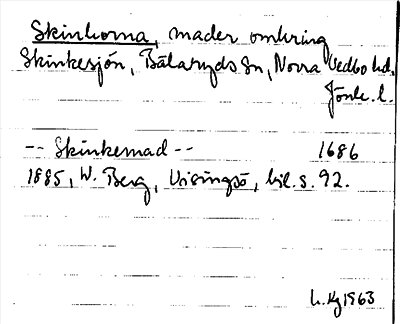 Skinkorna, mader omkring
Skinkesjön, Bälaryds sn, Norra Vedbo hd.
Jönk. l.
-- Skinkemad -- 1686
1885, W. Berg, Visingsö, bil. s. 92.
L. Kg 1963